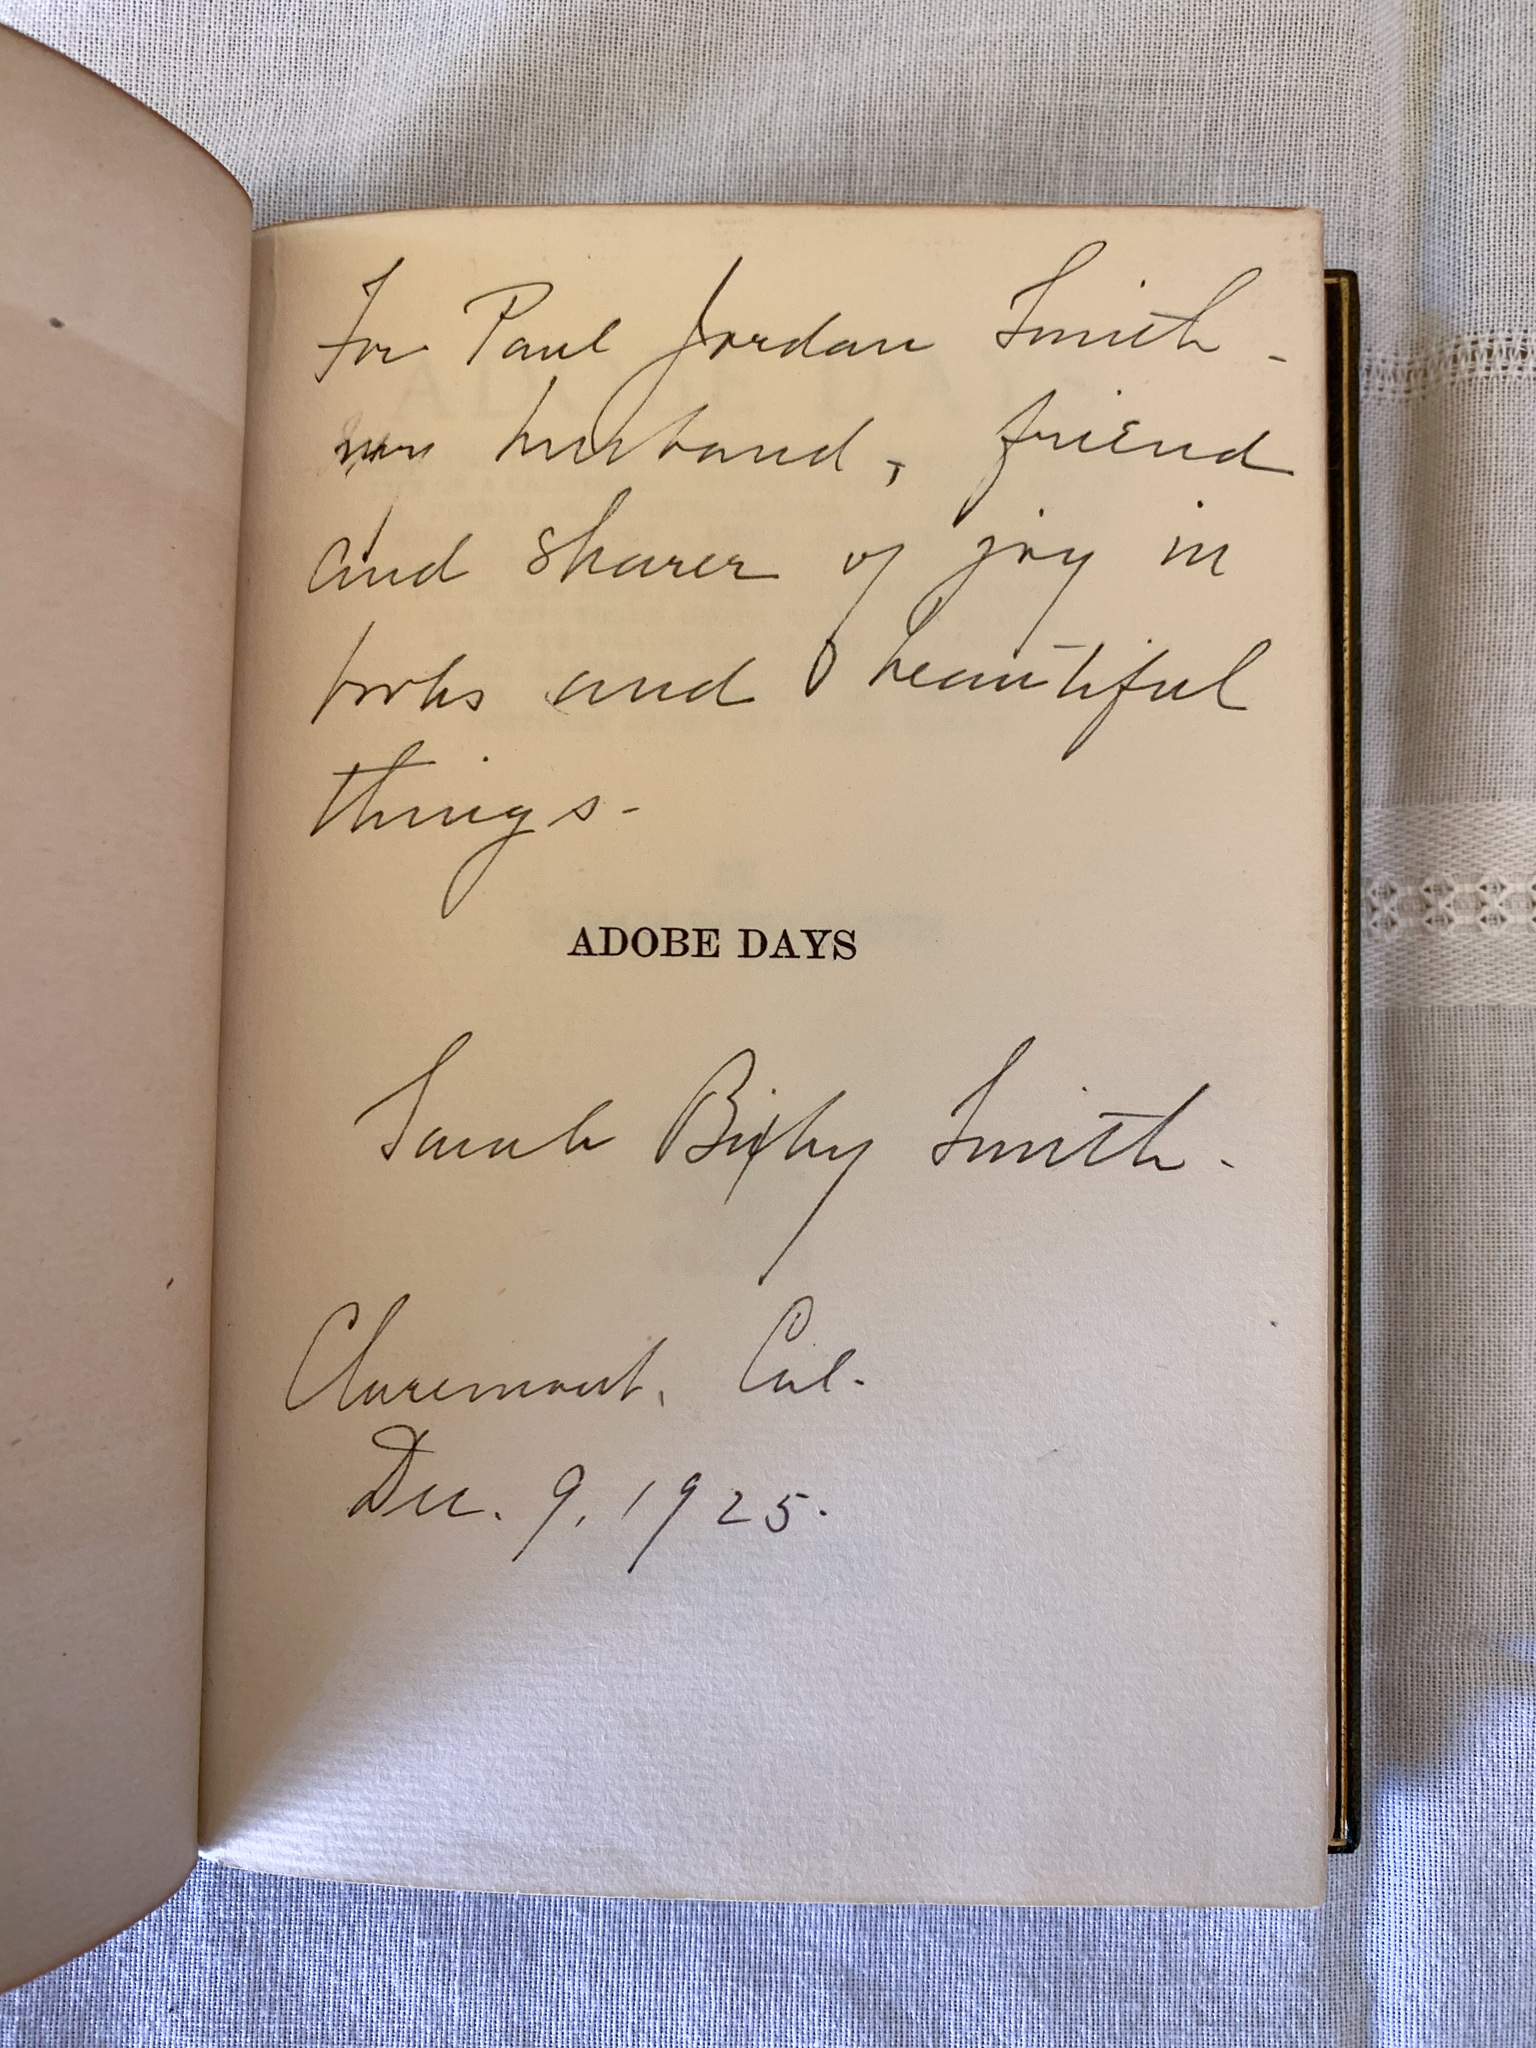 For Paul Jordan Smith -
husband, friend
and sharer of joy in
books and beautiful
things -
ADOBE DAYS
Sarah Bixby Smith.
Claremont, Cal.
Dec. 9, 1925.